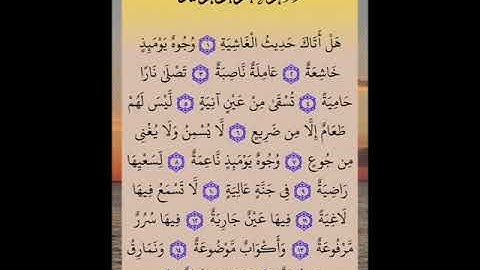 هَلْ أَتَاكَ حَدِيثُ الْغَاشِيَةِ ١ وُجُوهٌ يَوْمَئِذٍ
خَاشِعَةٌ ٢ عَامِلَةٌ نَّاصِبَةٌ ٣ تَصْلَى نَارًا
حَامِيَةً ٤ تُسْقَى مِنْ عَيْنٍ آنِيَةٍ ٥ لَّيْسَ لَهُمْ
طَعَامٌ إِلَّا مِن ضَرِيعٍ ٦ لَّا يُسْمِنُ وَلَا يُغْنِي
مِن جُوعٍ ٧ وُجُوهٌ يَوْمَئِذٍ نَّاعِمَةٌ ٨ لِّسَعْيِهَا
رَاضِيَةٌ ٩ فِي جَنَّةٍ عَالِيَةٍ ١٠ لَّا تَسْمَعُ فِيهَا
لَاغِيَةً ١١ فِيهَا عَيْنٌ جَارِيَةٌ ١٢ فِيهَا سُرُرٌ
مَّرْفُوعَةٌ ١٣ وَأَكْوَابٌ مَّوْضُوعَةٌ ١٤ وَنَمَارِقُ